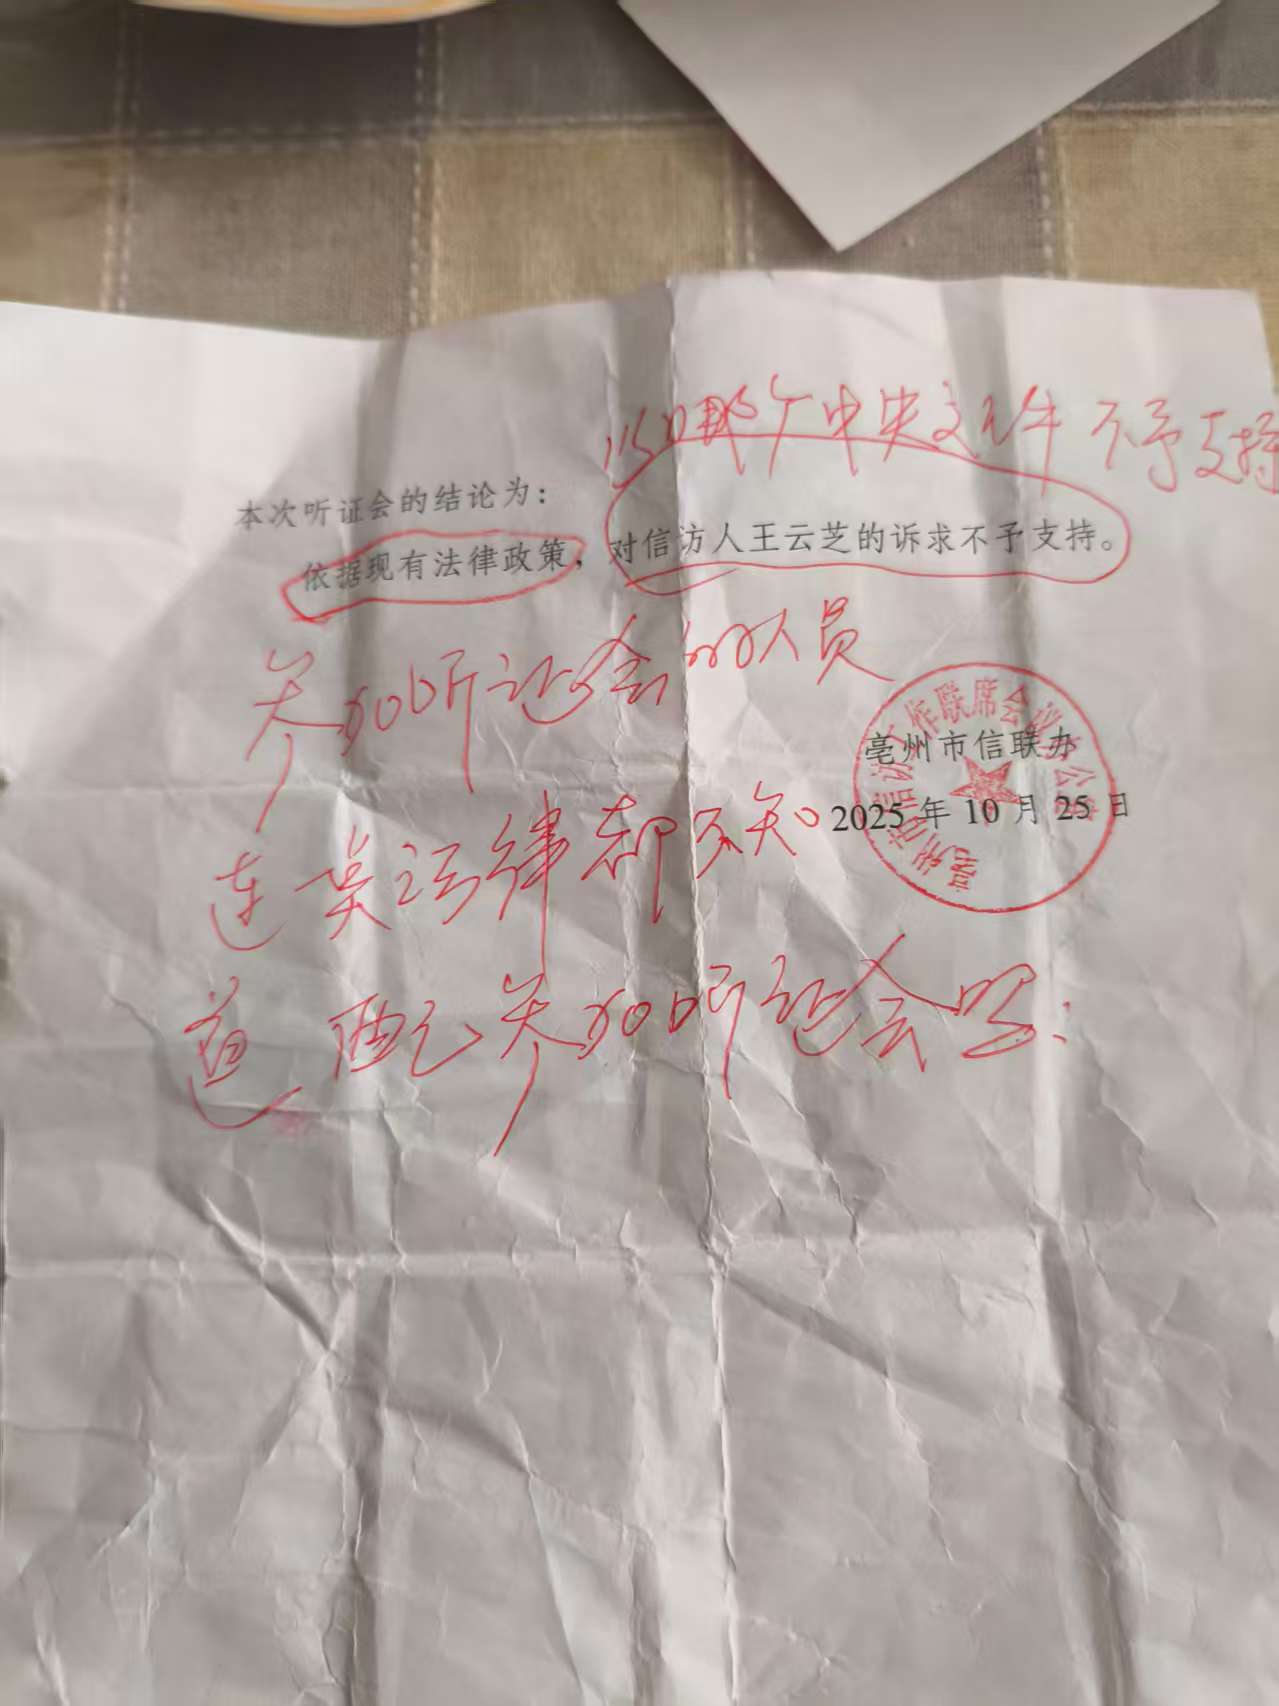 以哪个中央文件不予支持
本次听证会的结论为：
依据现有法律政策，对信访人王云芝的诉求不予支持。
参加听证会的人员
亳州市信访工作联席会议办公室
亳州市信联办
2025年10月25日
连 法律都不知
道 配参加听证会吗